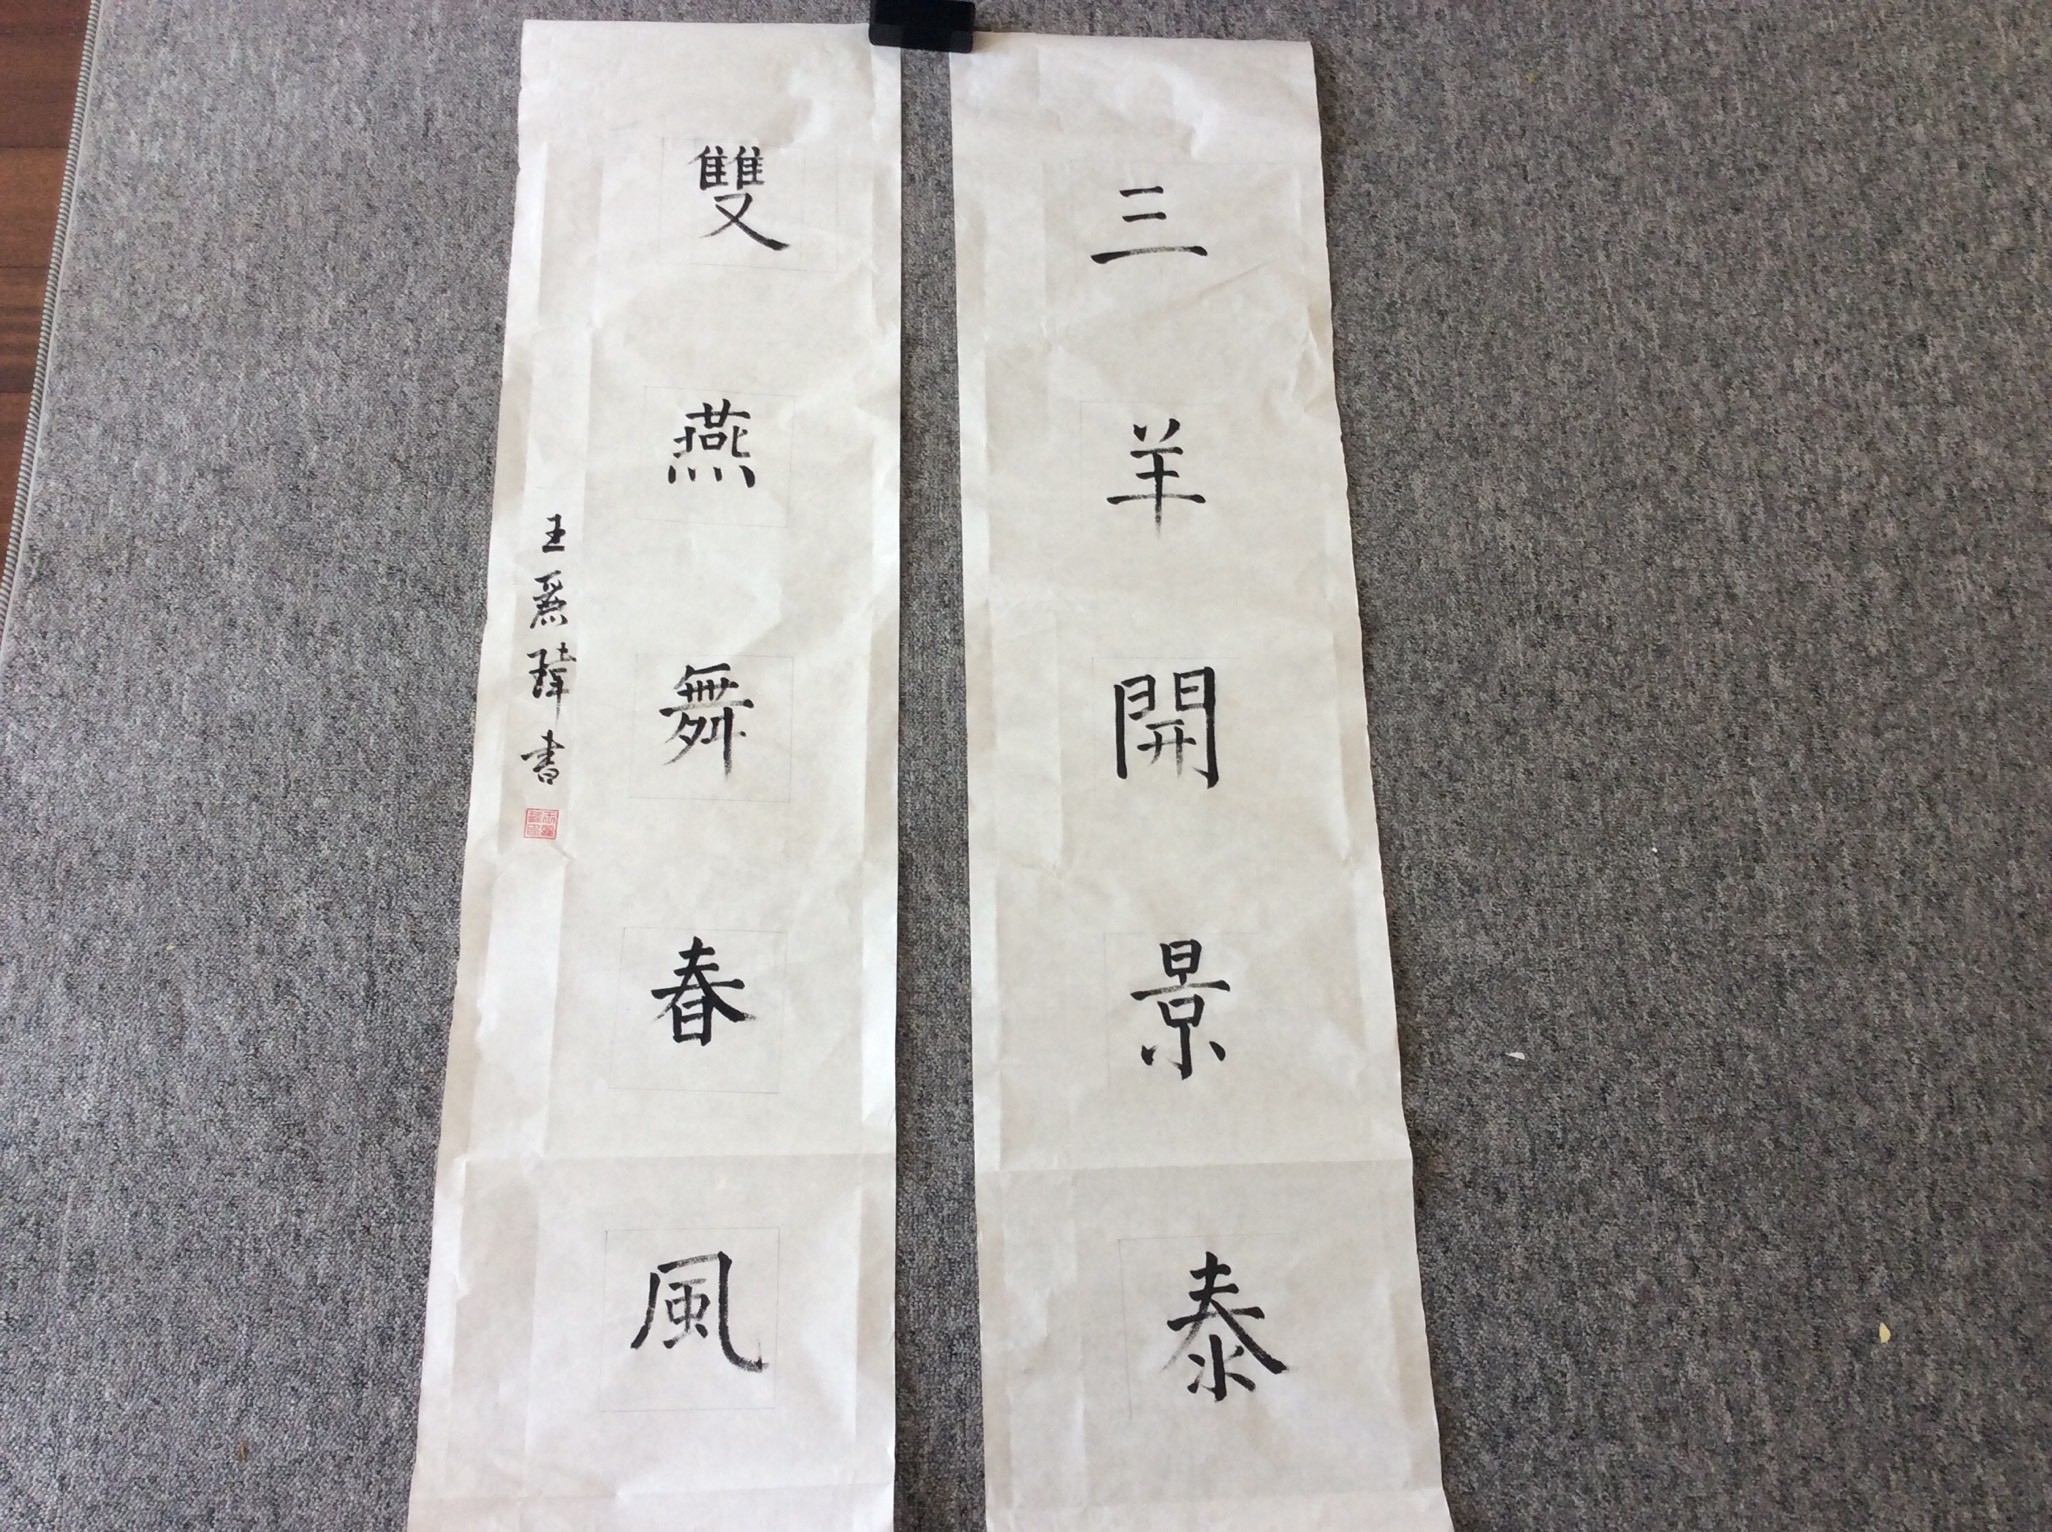 三羊開景泰
雙燕舞春風
王爲瑋書